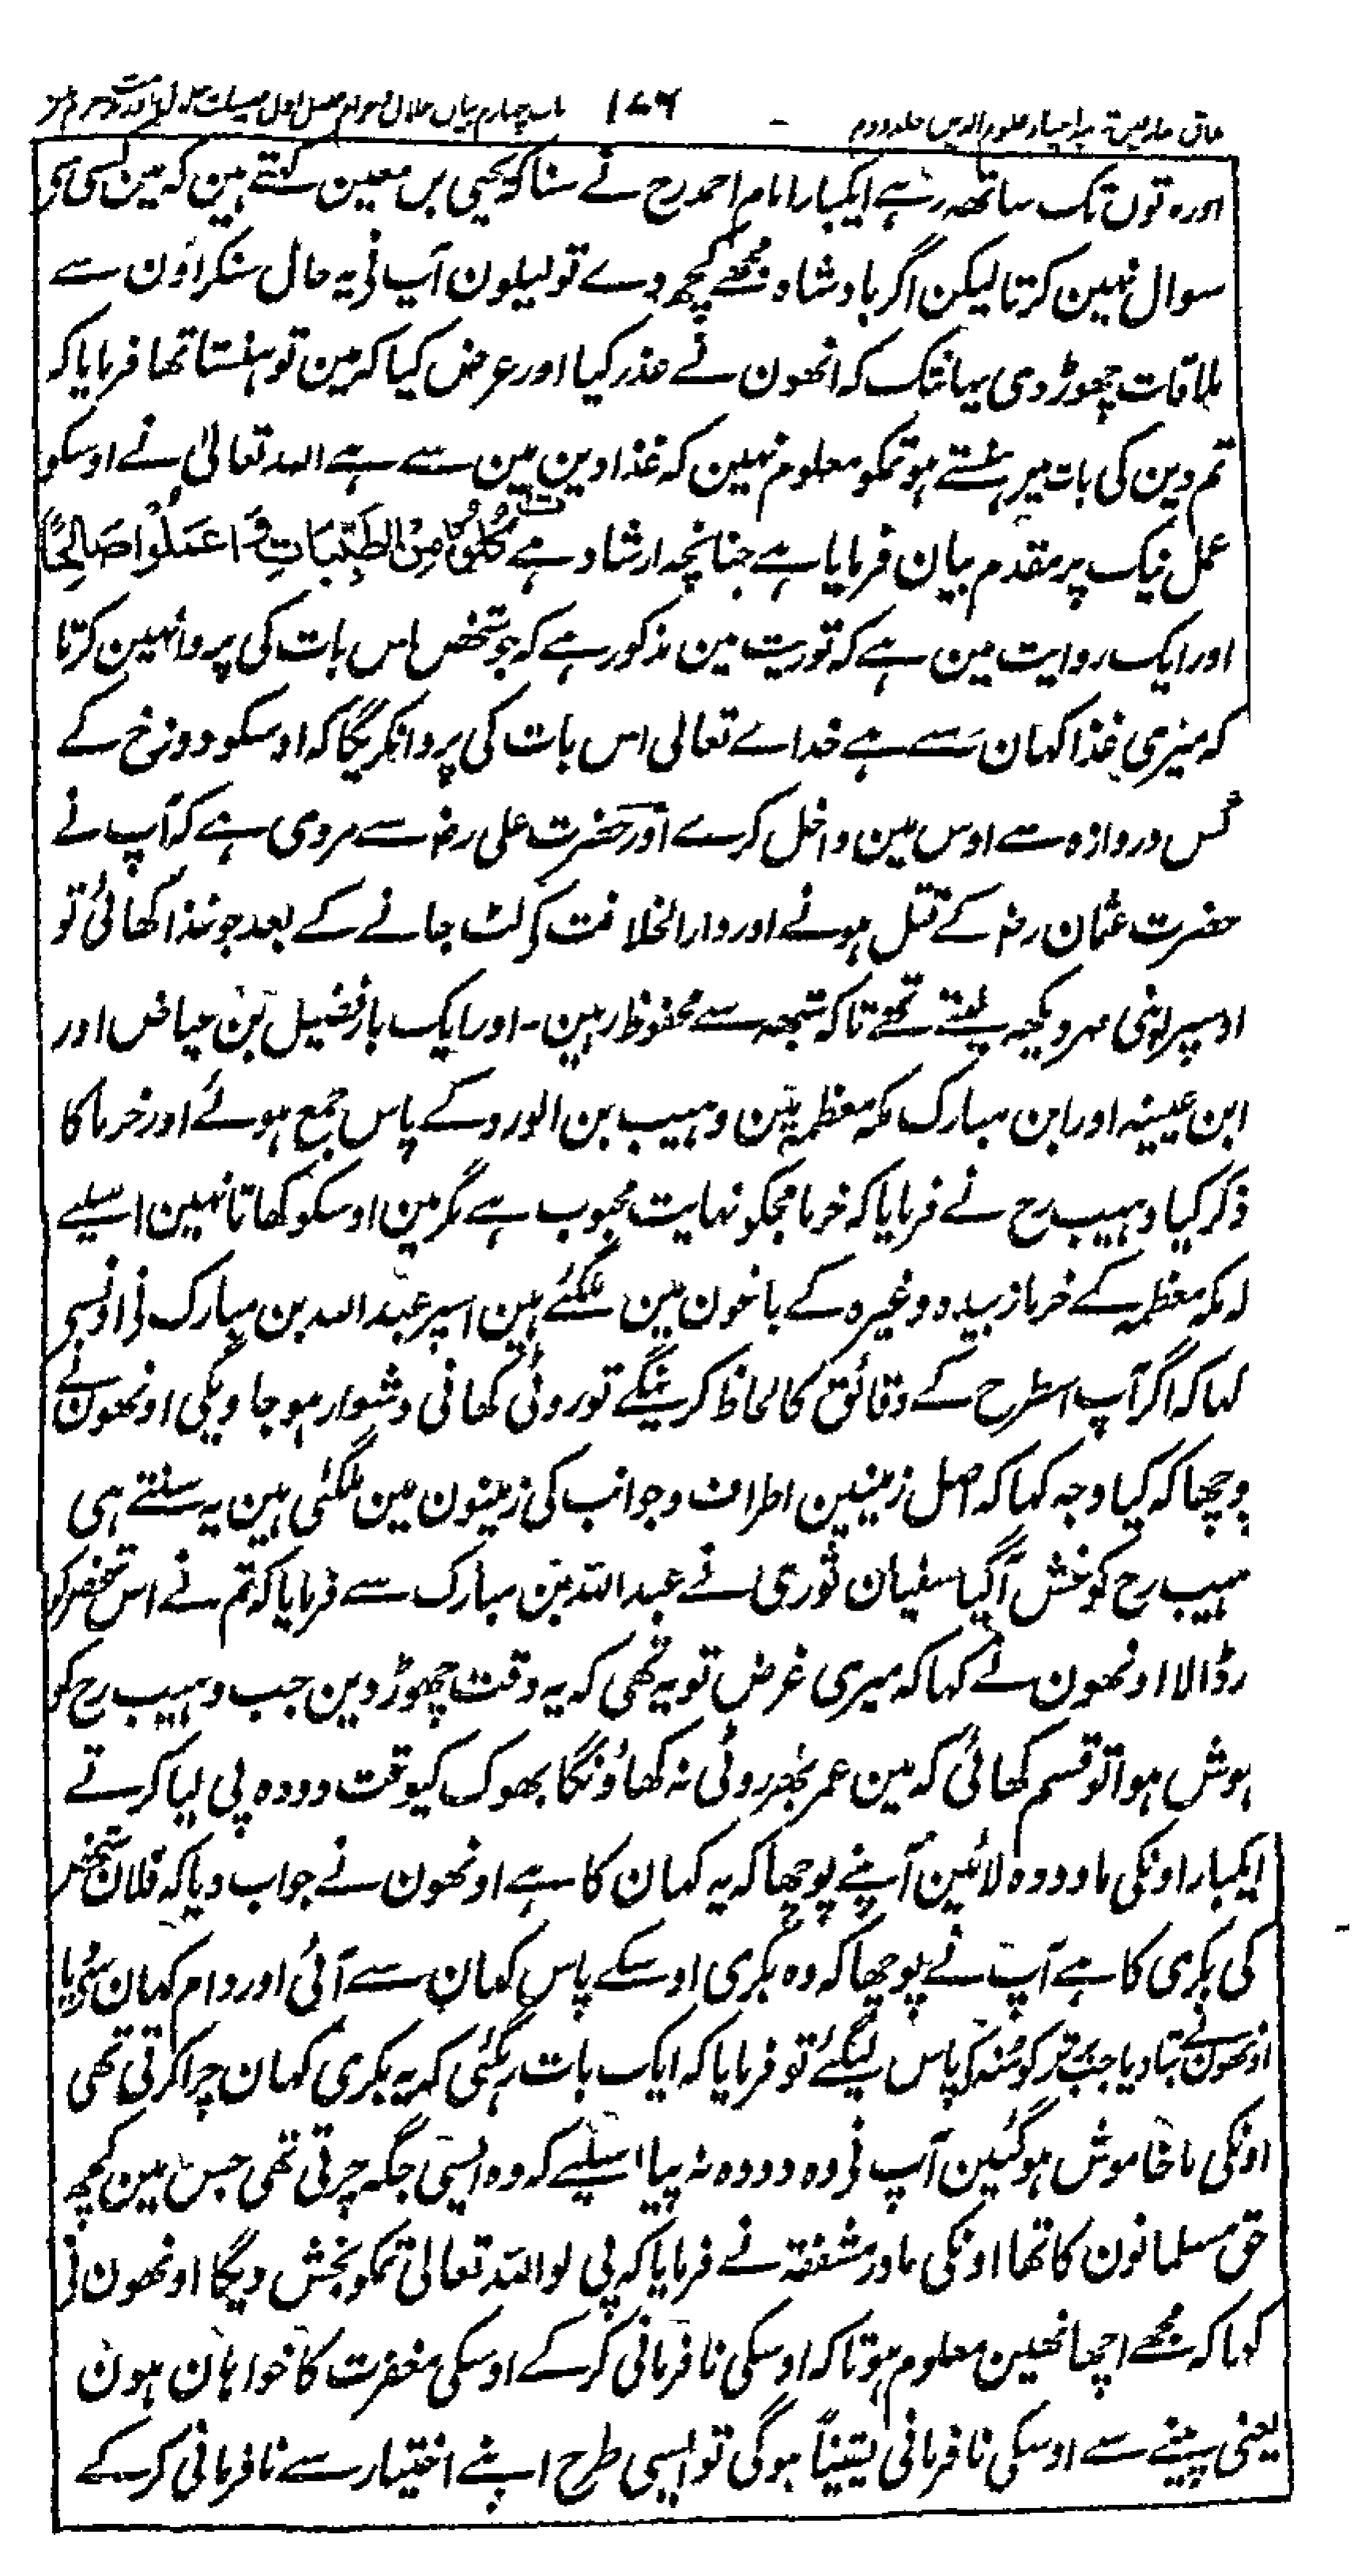 مذاق العارفین ترجمہ احیاء علوم الدین جلد دوم - ۱۷۶ باب چہارم بیان حلال و حرام فصل اول
اور مدتون تک ساتھ رہے ایکبار امام احمد رح نے سنا کہ یحیی بن معین کہتے ہین کہ مین کسی سے
سوال نہین کرتا لیکن اگر بادشاہ مجھے کچھ دے تو لیلون آپ نی یہ حال سنکر اؤن سے
ملاقات چھوڑ دی یہانتک کہ انھون نے عذر کیا اور عرض کیا کہ مین تو ہنستا تھا فرمایا کہ
تم دین کی بات مین ہنستے ہو تمکو معلوم نہین کہ غذا دین مین سے ہے اللہ تعالیٰ نے اوسکو
عمل نیک پر مقدم بیان فرمایا ہے چنانچہ ارشاد ہے کُلُوْا مِنَ الطَّیِّبَاتِ وَ اعْمَلُوْا صَالِحًا
اور ایک روایت مین ہے کہ توریت مین مذکور ہے کہ جو شخص اس بات کی پروا نہین کرتا
کہ میری غذا کہان سے ہے خداے تعالی اس بات کی پروا نکریگا کہ اوسکو دوزخ کے
کس دروازہ سے اوس مین داخل کرے اور حضرت علی رضہ سے مروی ہے کہ آپ نے
حضرت عثمان رضہ کے قتل ہونے اور دار الخلافت کے لٹ جانے کے بعد جو غذا کھائی تو
اوسپر اپنی مہر دیکھ لیتے تھے تاکہ شبھہ سے محفوظ رہین۔ اور ایک بار فضیل بن عیاض اور
ابن عیینہ اور ابن مبارک مکہ معظمہ مین وہیب بن الورد کے پاس جمع ہوئے اور خرما کا
ذکر کیا وہیب رح نے فرمایا کہ خرما مجکو نہایت محبوب ہے مگر مین اوسکو کھاتا نہین اسلیے
کہ مکہ معظمہ کے خرما زبیدہ وغیرہ کے باغون مین ملگئے ہین اسپر عبد اللہ بن مبارک نی اونسی
کہا کہ اگر آپ اسطرح کے دقائق کا لحاظ کرینگے تو روٹی کھانی دشوار ہو جاویگی اونھون نے
پوچھا کہ کیا وجہ کہا کہ اصل زمینین اطراف و جوانب کی زمینون مین ملگئی ہین یہ سنتے ہی
ہیب رح کو غش آگیا سفیان ثوری نے عبد اللہ بن مبارک سے فرمایا کہ تم نے اس شخص کو
رڈالا اونھون نے کہا کہ میری غرض تو یہ تھی کہ یہ دقت چھوڑ دین جب وہیب رح کو
ہوش ہوا تو قسم کھائی کہ مین عمر بھر روٹی نہ کھاؤنگا بھوک کیوقت دودہ پی لیا کرتے
ایکبار اونکی ما دودہ لائین آپنے پوچھا کہ یہ کہان کا ہے اونھون نے جواب دیا کہ فلان شخص
کی بکری کا ہے آپ نے پوچھا کہ وہ بکری اوسکے پاس کہان سے آئی اور دام کہان سی دیا
اونھون نے بتا دیا جب کو منہ کے پاس لیگئے تو فرمایا کہ ایک بات رہگئی کہ یہ بکری کہان چرا کرتی تھی
اونکی ما خاموش ہو گئین آپ نی وہ دودہ نہ پیا اسلیے کہ وہ ایسی جگہ چرتی تھی جس مین کچھ
حق مسلمانون کا تھا اونکی مادر مشفقہ نے فرمایا کہ پی لو اللہ تعالیٰ تمکو بخش دیگا اونھون نی
کہا کہ مجھے اچھا نھین معلوم ہوتا کہ اوسکی نافرمانی کرکے اوسکی مغفرت کا خواہان ہون
یعنی پینے سے اوسکی نافرمانی یقیناً ہوگی تو ایسی طرح اپنے اختیار سے نافرمانی کرکے